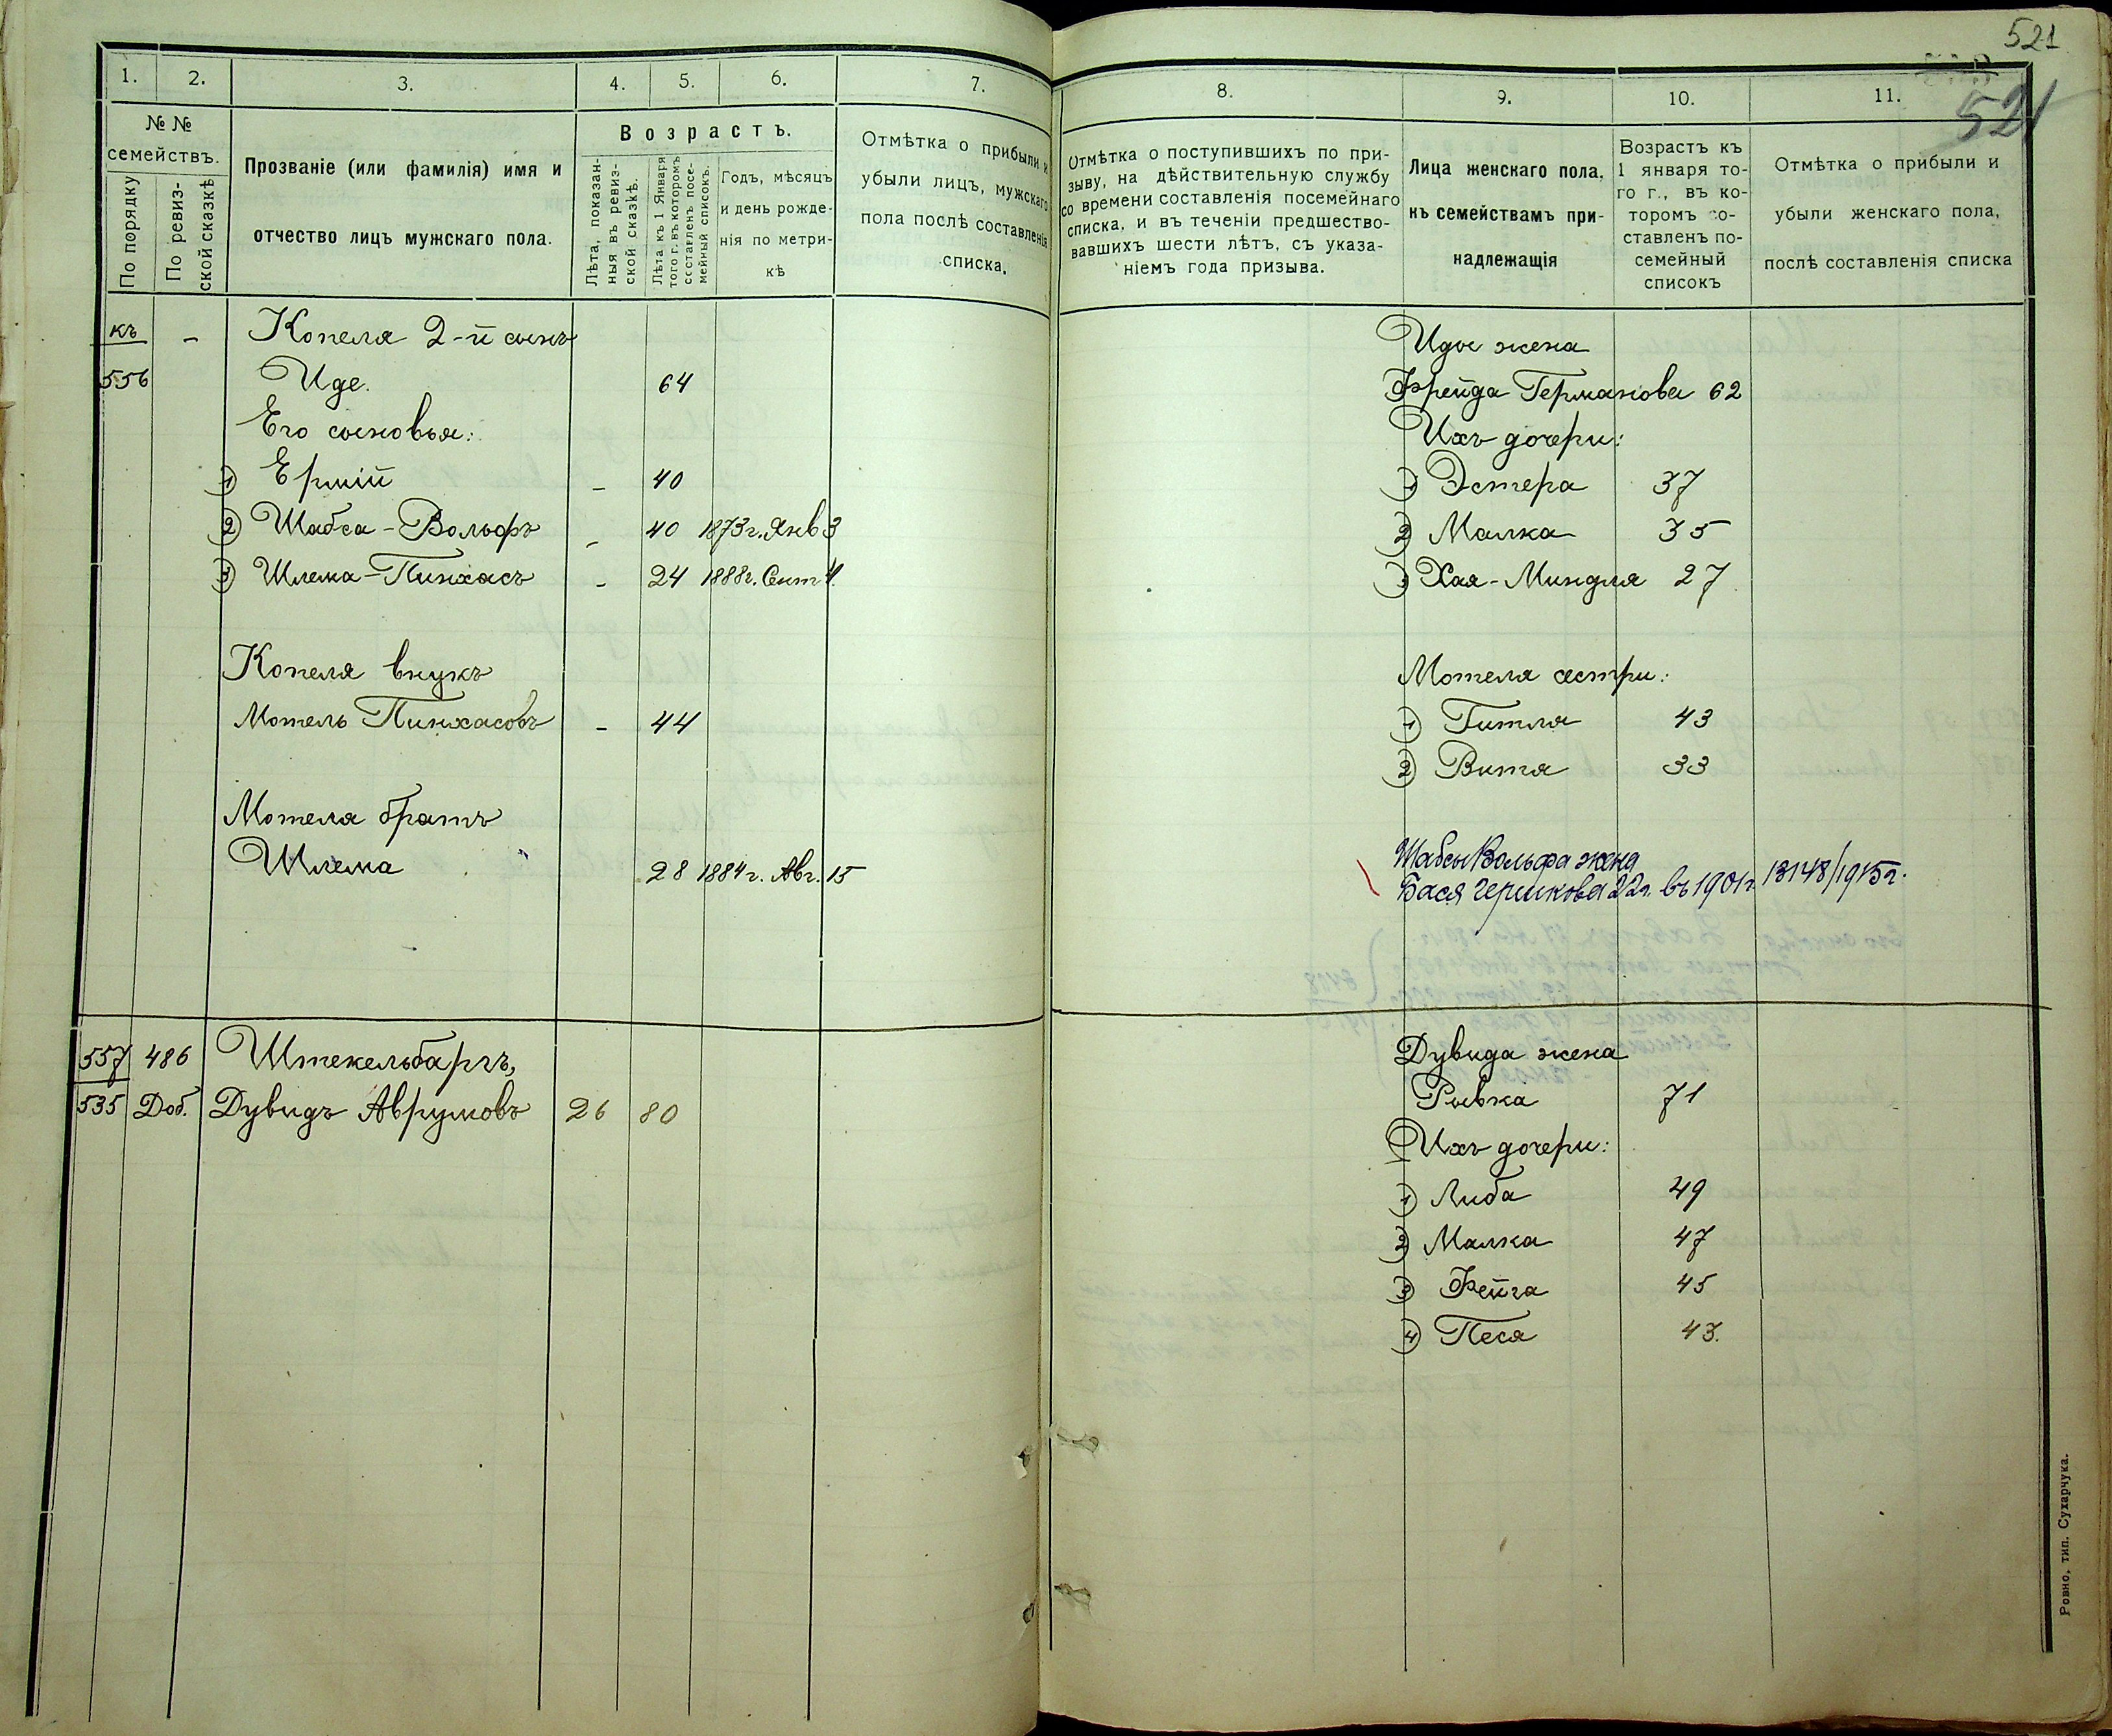 521
521
1.
2.
3.
4.
5.
6.
7.
№ №
семействъ.
По порядку
По ревиз-
ской сказкѣ
Прозваніе (или фамилія) имя и
отчество лицъ мужскаго пола.
Возрастъ.
Лѣта, показан-
ныя въ ревиз-
ской сказкѣ.
Лѣта къ 1 Января
того г. въ которомъ
составленъ посе-
мейный списокъ.
Годъ, мѣсяцъ
и день рожде-
нія по метри-
кѣ
Отмѣтка о прибыли и
убыли лицъ, мужскаго
пола послѣ составленія
списка.
къ - Копеля 2-й сынъ
556 Иде. 64
Его сыновья:
1) Ермій - 40
2) Шабса-Вольфъ - 40 1873г. Янв 3
3) Шлема-Пинхасъ - 24 1888г. Сент 4.
Копеля внукъ
Мотель Пинхасовъ - 44
Мотеля братъ
Шлема 28 1884г. Авг. 15
557 486 Штекельбаргъ,
535 Доб. Дувидъ Аврумовъ 26 80
8.
9.
10.
11.
Отмѣтка о поступившихъ по при-
зыву, на дѣйствительную службу
со времени составленія посемейнаго
списка, и въ теченіи предшество-
вавшихъ шести лѣтъ, съ указа-
ніемъ года призыва.
Лица женскаго пола,
къ семействамъ при-
надлежащія
Возрастъ къ
1 января то-
го г., въ ко-
торомъ со-
ставленъ по-
семейный
списокъ
Отмѣтка о прибыли и
убыли женскаго пола,
послѣ составленія списка
Иды жена
Фрейда Германова 62
Ихъ дочери:
1) Эстера 37
2) Малка 35
3) Хая-Миндля 27
Мотеля сестри:
1) Гитля 43
2) Витя 33
Шабсы Вольфа жена
Бася Гершкова 22г. въ 1901г. 13148/1915г.
Дувида жена
Рывка 71
Ихъ дочери:
1) Либа 49
2) Малка 47
3) Фейга 45
4) Песя 43.
Ровно, тип. Сухарчука.